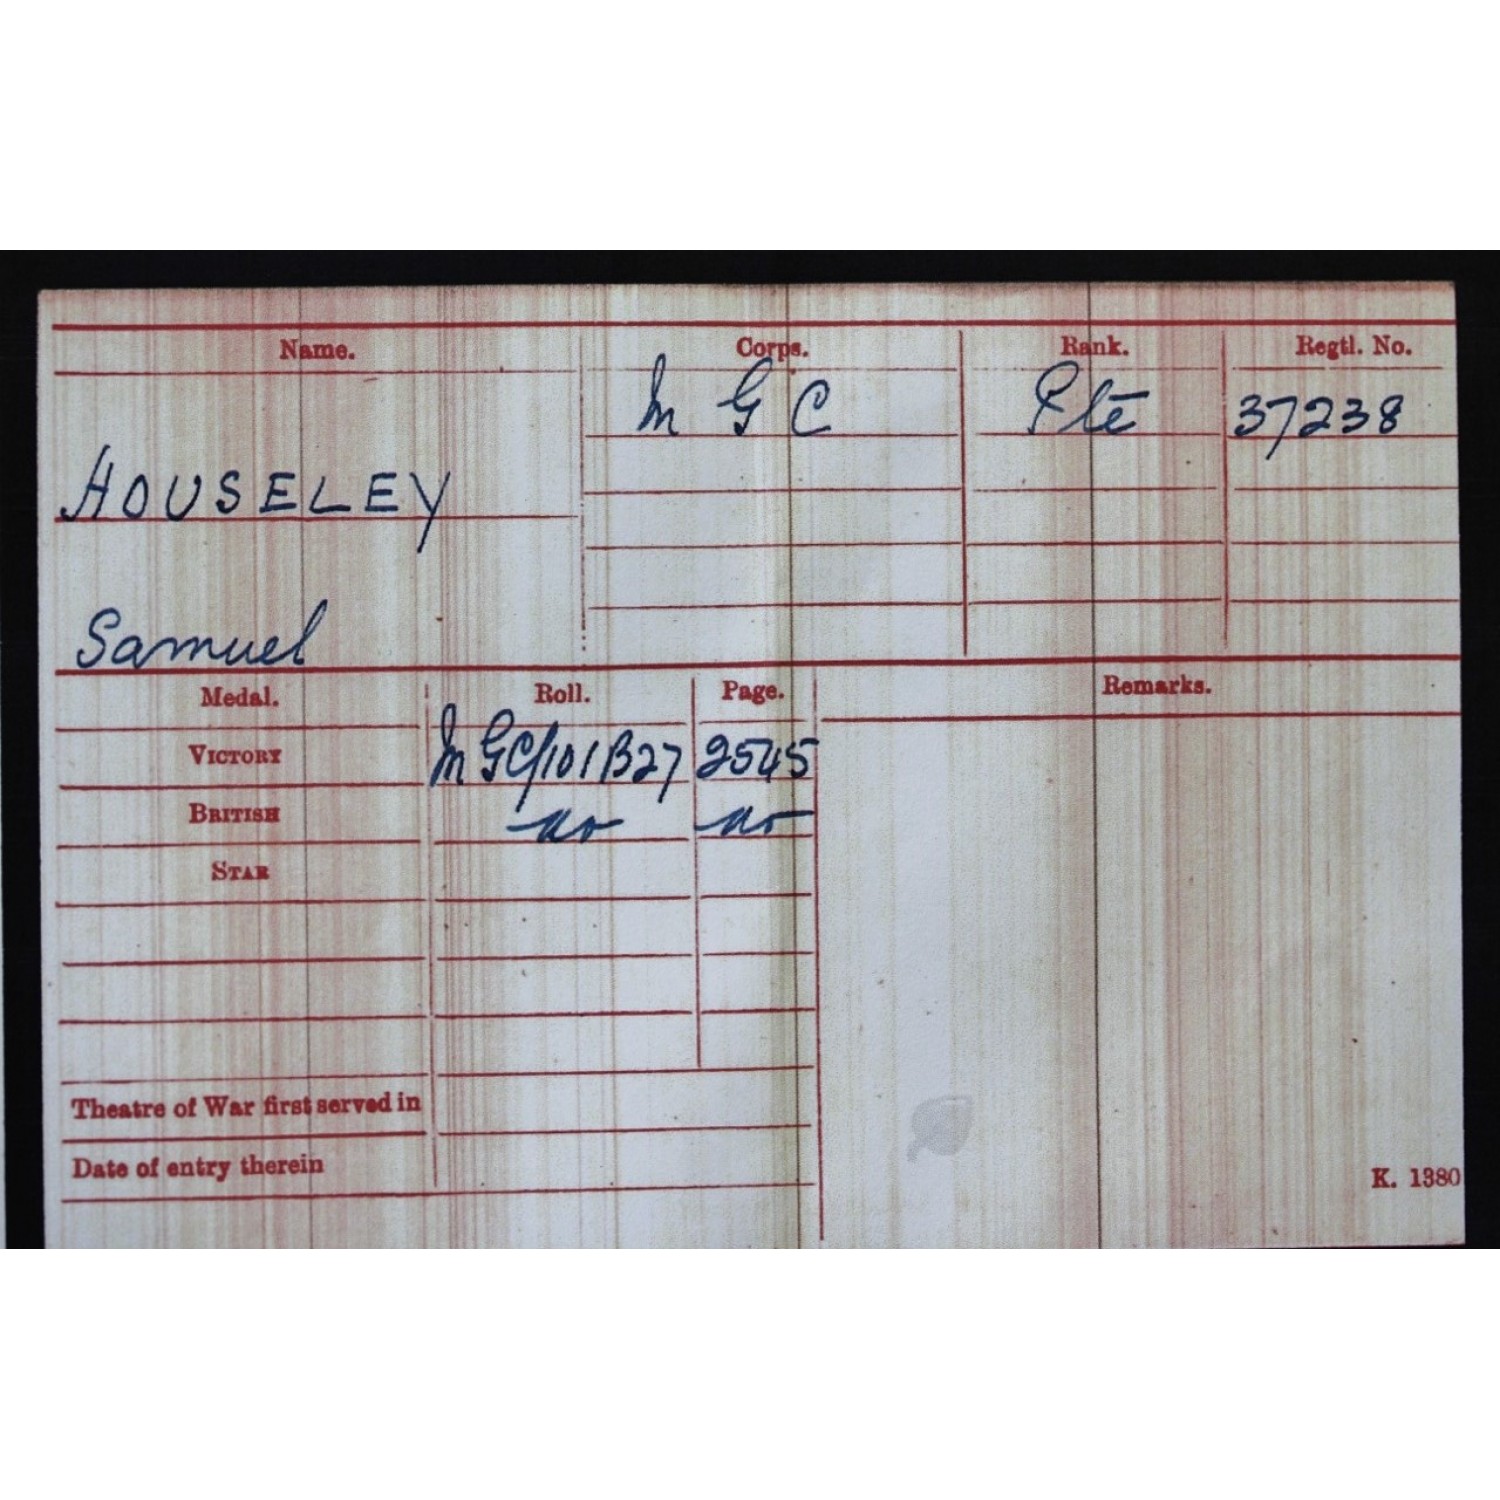 Name. Corps. Rank. Regtl. No.
M G C Pte 37238
HOUSELEY
Samuel
Medal. Roll. Page. Remarks.
VICTORY MGC/101B27 2545
BRITISH do do
STAR
Theatre of War first served in
Date of entry therein
K. 1380